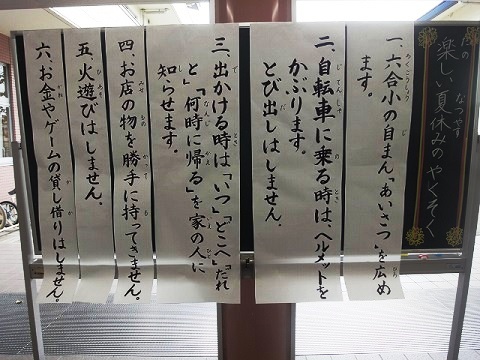 楽しい夏休みのやくそく
一、六合小の自まん「あいさつ」を広め
ます。
二、自転車に乗る時は、ヘルメットを
かぶります。
とび出しはしません。
三、出かける時は「いつ」「どこへ」「だれ
と」「何時に帰る」を家の人に
知らせます。
四、お店の物を勝手に持ってきません。
五、火遊びはしません。
六、お金やゲームの貸し借りはしません。